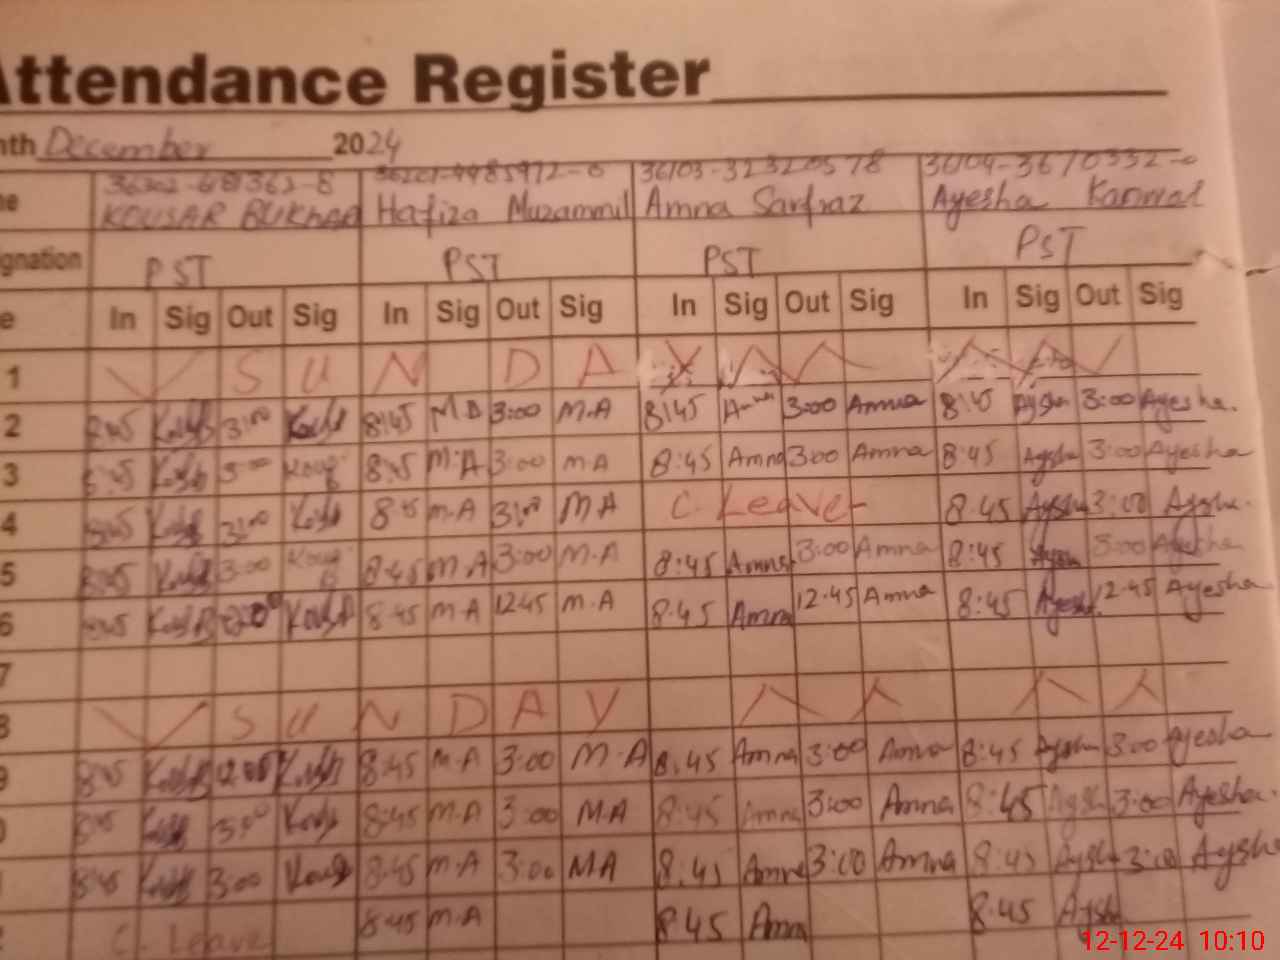 Attendance Register
nth December 2024
36103-32320578 36104-3670332-0
me KOUSAR BUKHARI Hafiza Muzammil Amna Sarfraz Ayesha Kanwal
ignation PST PST PST PST
e In Sig Out Sig In Sig Out Sig In Sig Out Sig In Sig Out Sig
1 S U N D A Y
2 8:45 3:00 8:45 3:00 M.A 8:45 Amna 3:00 Amna 8:45 Aysha 3:00 Ayesha.
3 8:45 3:00 8:45 M.A 3:00 M.A 8:45 Amna 3:00 Amna 8:45 Aysha 3:00 Ayesha
4 8:45 3:00 8:45 M.A 3:00 M.A C. Leave 8:45 Aysha 3:00 Aysha.
5 8:45 3:00 8:45 M.A 3:00 M.A 8:45 Amna 3:00 Amna 8:45 3:00 Ayesha
6 8:45 8:45 M.A 12:45 M.A 8:45 Amna 12:45 Amna 8:45 12:45 Ayesha
7
8 S U N D A Y
9 8:45 8:45 M.A 3:00 M.A 8:45 Amna 3:00 Amna 8:45 Aysha 3:00 Ayesha
0 8:45 8:45 M.A 3:00 M.A 8:45 Amna 3:00 Amna 8:45 Aysha 3:00 Ayesha.
8:45 3:00 8:45 M.A 3:00 M.A 8:45 Amna 3:00 Amna 8:45 Aysha 3:00 Aysha
2 C. Leave 8:45 M.A 8:45 Amna 8:45 Aysha
12-12-24 10:10